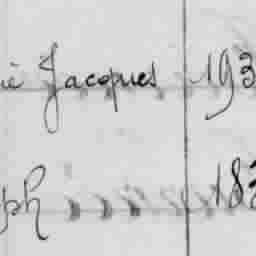 ié Jacques 193
ph 183